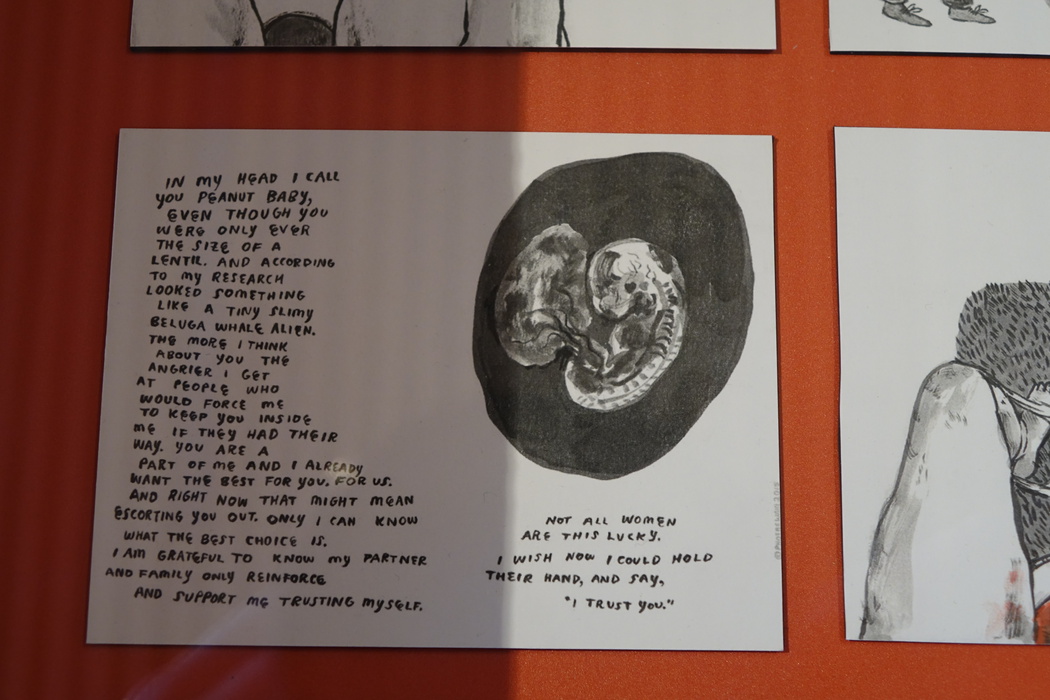 IN MY HEAD I CALL
YOU PEANUT BABY,
EVEN THOUGH YOU
WERE ONLY EVER
THE SIZE OF A
LENTIL. AND ACCORDING
TO MY RESEARCH
LOOKED SOMETHING
LIKE A TINY SLIMY
BELUGA WHALE ALIEN.
THE MORE I THINK
ABOUT YOU THE
ANGRIER I GET
AT PEOPLE WHO
WOULD FORCE ME
TO KEEP YOU INSIDE
ME IF THEY HAD THEIR
WAY. YOU ARE A
PART OF ME AND I ALREADY
WANT THE BEST FOR YOU. FOR US.
AND RIGHT NOW THAT MIGHT MEAN
ESCORTING YOU OUT. ONLY I CAN KNOW
WHAT THE BEST CHOICE IS.
I AM GRATEFUL TO KNOW MY PARTNER
AND FAMILY ONLY REINFORCE
AND SUPPORT ME TRUSTING MYSELF.
NOT ALL WOMEN
ARE THIS LUCKY.
I WISH NOW I COULD HOLD
THEIR HAND, AND SAY,
"I TRUST YOU."